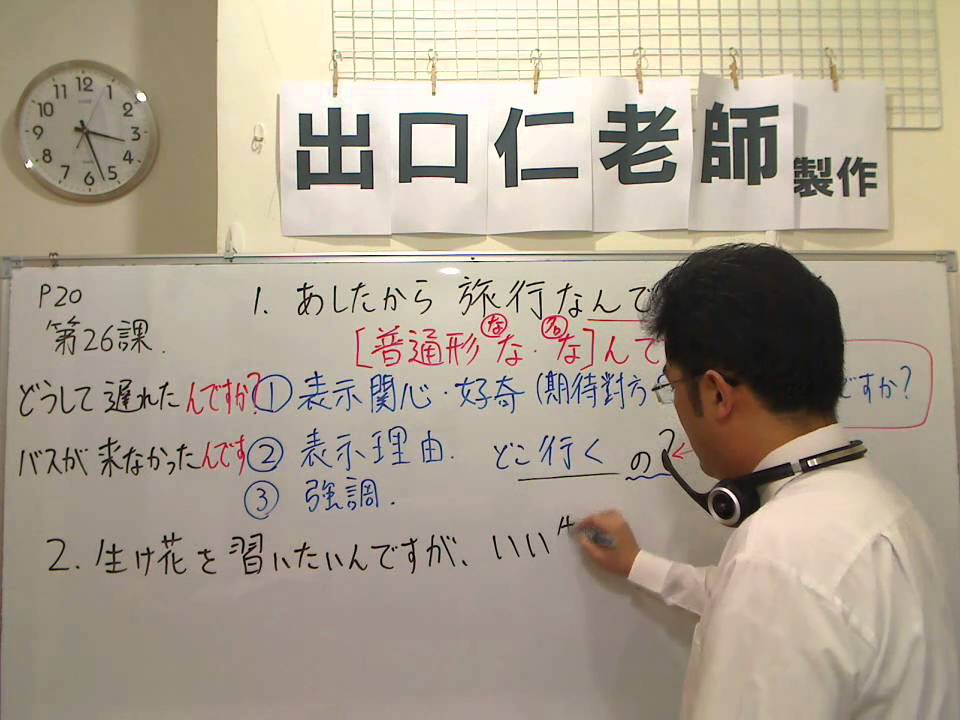 出口仁老師 製作
12
1
2
3
4
5
6
7
8
9
10
11
P20
第26課.
1. あしたから 旅行なんで
[普通形 な・な]んで
な
名
どうして 遅れたんですか?
① 表示関心・好奇 (期待對方
ですか?
バスが 来なかったんです
② 表示理由.
どこ 行く の?
③ 強調.
2. 生け花を習いたいんですが、いい